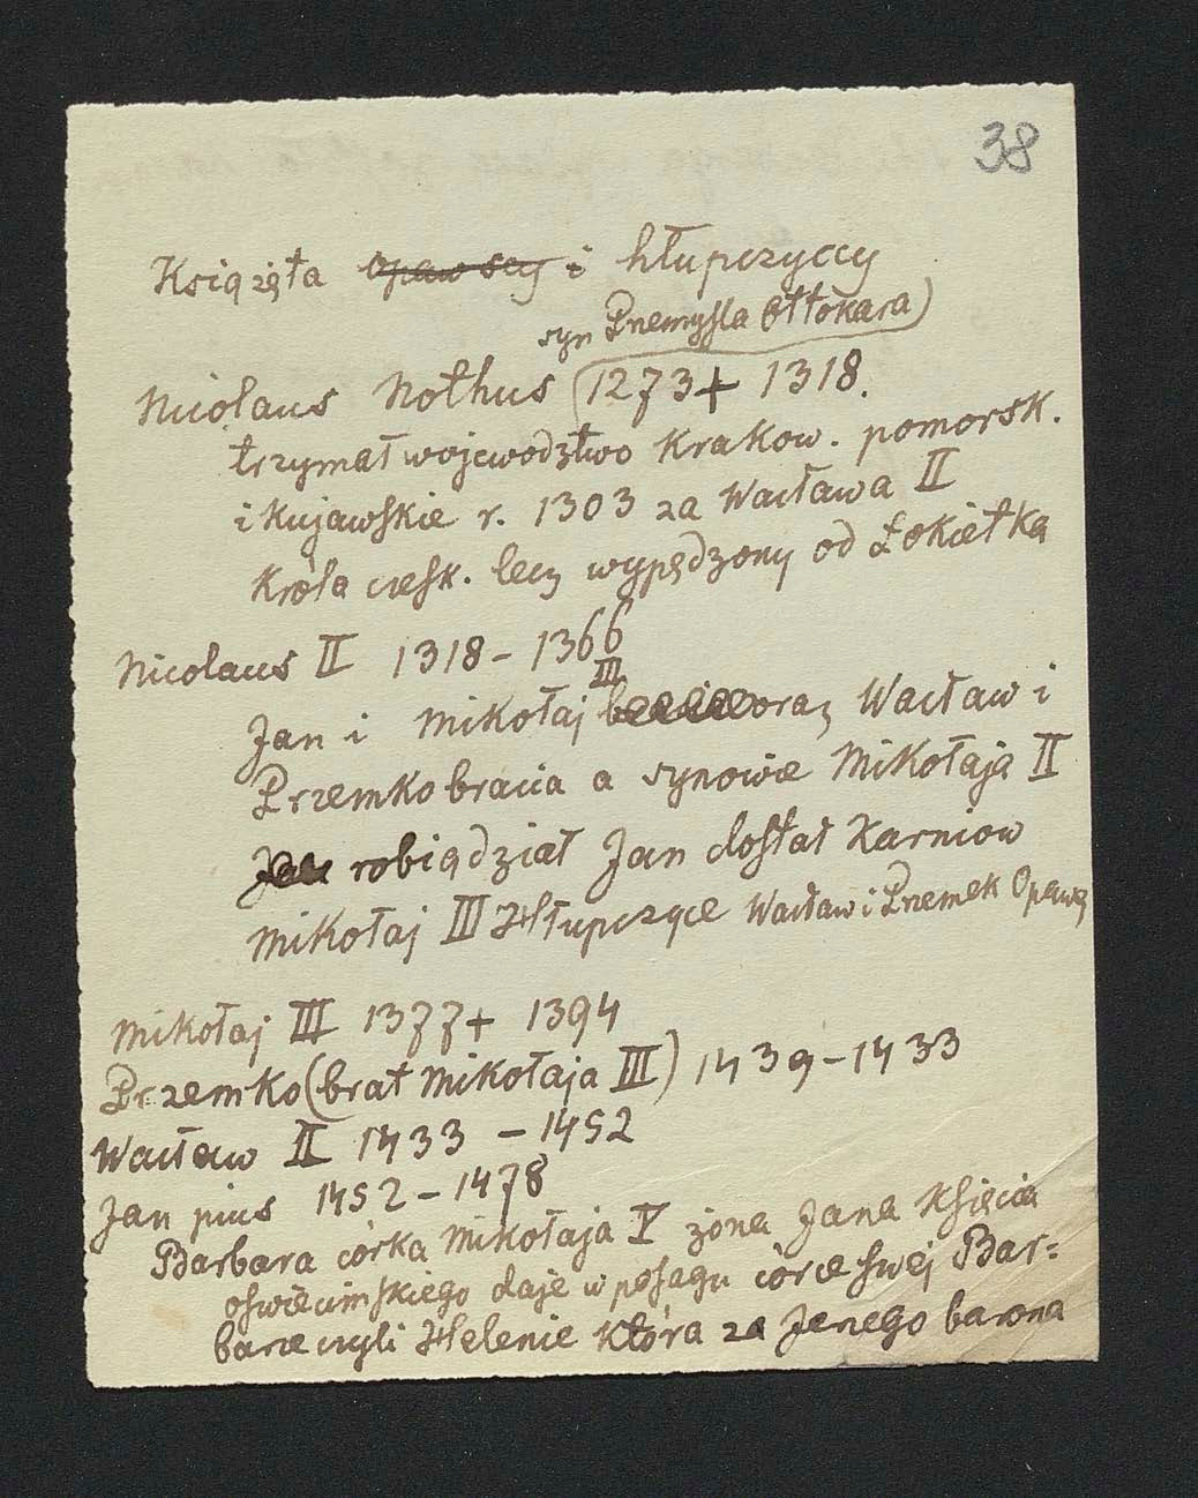 38
Książęta opawscy i hłupczyccy
syn Przemysla Ottokara)
Nicolaus Nothus (1273 + 1318.
trzymał wojewodztwo Krakow. pomorsk.
i Kujawskie r. 1303 za Wacława II
Króla czesk. lecz wypędzony od Łokietka
Nicolaus II 1318 - 1366
III
Jan i Mikołaj oraz Wacław i
Przemko bracia a synowie Mikołaja II
Jan robią dział Jan dostał Karniow
Mikołaj III Hłupczyce Wacław i Przemek Opawę
Mikołaj III 1377 + 1394
Przemko (brat Mikołaja III) 1439 - 1433
Wacław II 1433 - 1452
Jan pius 1452 - 1478
Barbara córka Mikołaja V żona Jana Księcia
oswięcimskiego daje w posagu córce swej Bar=
barze czyli Helenie która za Jenego barona